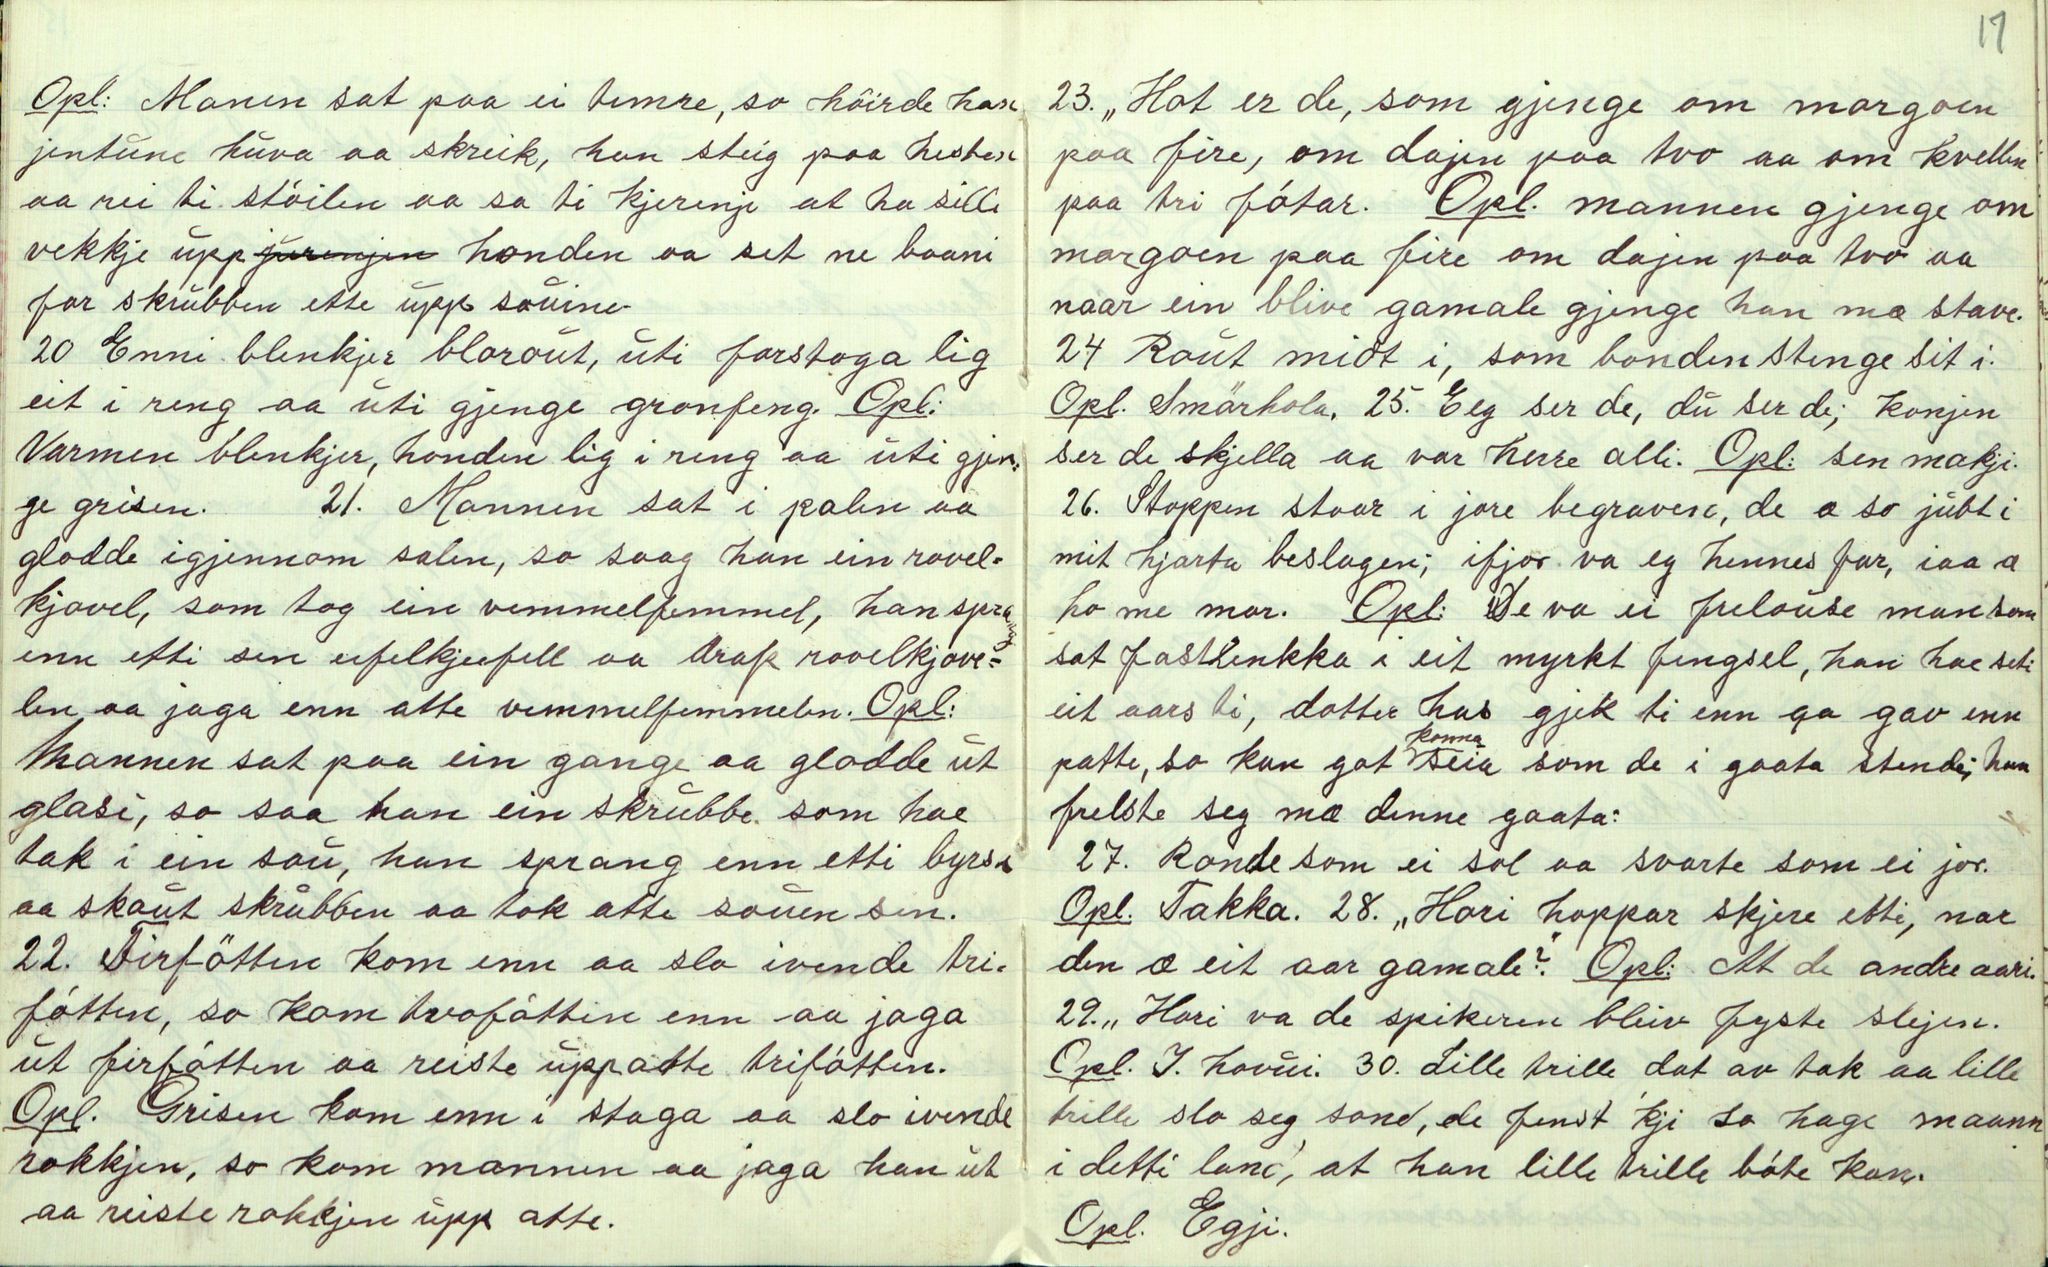 Opl: Manen sat paa ei temre, so höirde han
jentune huva aa skreik, han steig paa hesten
aa rei ti stöilen aa sa ti kjerenje at ha sille
vekkje upp jurenjen honden aa set ne baani
for skrubben ette upp souine.
20 Enni blenkjer blorout, uti forstoga lig
eit i reng aa uti gjenge gronfeng. Opl:
Varmen blenkjer, honden lig i reng aa uti gjen:
ge grisen. 21. Mannen sat i palen aa
glodde igjennom salen, so saag han ein rovel-
kjovel, som tog ein vemmelfemmel, han sprang
enn etti sen eifelkjeefell aa drap rovelkjove-
len aa jaga enn atte vemmelfemmelen. Opl:
Mannen sat paa ein gange aa glodde ut
glasi, so saa han ein skrubbe som hae
tak i ein sou, han sprang enn etti byrsa
aa skout skrubben aa tok atte souen sen.
22. Firfötten kom enn aa slo ivende tri-
fótten, so kom tvofóttin enn aa jaga
ut firfótten aa reiste uppatte trifótten.
Opl. Grisen kom enn i staga aa slo ivende
rokkjen, so kom mannen aa jaga han ut
aa reiste rokkjen upp atte.
17
23. „Hot er de, som gjenge om margoen
paa fire, om dajen paa tvo aa om kvellen
paa tri fótar. Opl. mannen gjenge om
margoen paa fire om dajen paa tvo aa
naar ein blive gamale gjenge han mæ stave.
24 Rout midt i, som bonden stenge sit i.
Opl. Smörhola. 25. Eeg ser de, du ser de; konjen
ser de skjella aa vor herre alli. Opl: sen makji.
26. Stoppen stoar i jore begraven, de æ so jubt i
mit hjarta beslagen; ifjor va eg hennes far, iaa æ
ho me mor. Opl: De va ei frelouse man som
sat fastlenkka i eit myrkt fengsel, han hae seti
eit aars ti, dotter has gjek ti enn aa gav enn
patte, so kan got konna seia som de i gaata stende; han
frelste seg mæ denne gaata:
27. Ronde som ei sol aa svarte som ei jor.
Opl. Takka. 28. „Hori hoppar skjere etti, nar
den æ eit aar gamale"?. Opl: At de andre aari.
29. „Hori va de spikeren bleiv fyste slejen.
Opl. I. hovui. 30. Lille trille dat av tak aa lille
trille slo seg sond, de fenst 'kji so hage maann
i detti land, at han lille trille bóte kan.
Opl. Egji.